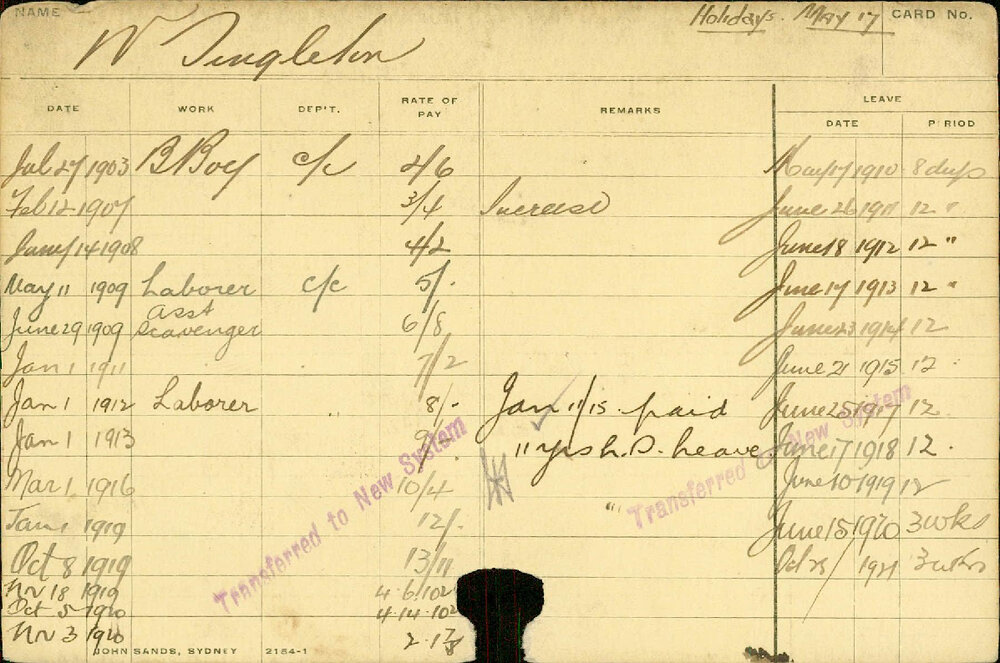 NAME
Holidays. May 17
CARD No.
W Singleton
DATE WORK DEP'T. RATE OF PAY REMARKS LEAVE
DATE PERIOD
Jul 27 1903 B Boy c/c 2/6 May 17 1910 8 days
Feb 12 1907 3/4 Increase June 26 1911 12 "
14 1908 4/2 June 18 1912 12 "
May 11 1909 Laborer c/c 5/- June 17 1913 12 "
June 29 1909 Asst Scavenger 6/8 June 23 1914 12
Jan 1 1911 7/2 June 21 1915 12
Jan 1 1912 Laborer " 8/- Jan 11/15 paid June 25 1917 12.
Jan 1 1913 9/- 11 yrs L.S. Leave June 17 1918 12.
Mar 1 1916 10/4 June 10 1919 12
Jan 1 1919 12/- June 15 1920 3 wks
Oct 8 1919 13/11 Oct 25/1921 3 wks
Nov 18 1919 4.6.10
Oct 5 1920 4.14.10
Nov 3 1920
Transferred to New System
Transferred to New System
JOHN SANDS, SYDNEY 2154-1